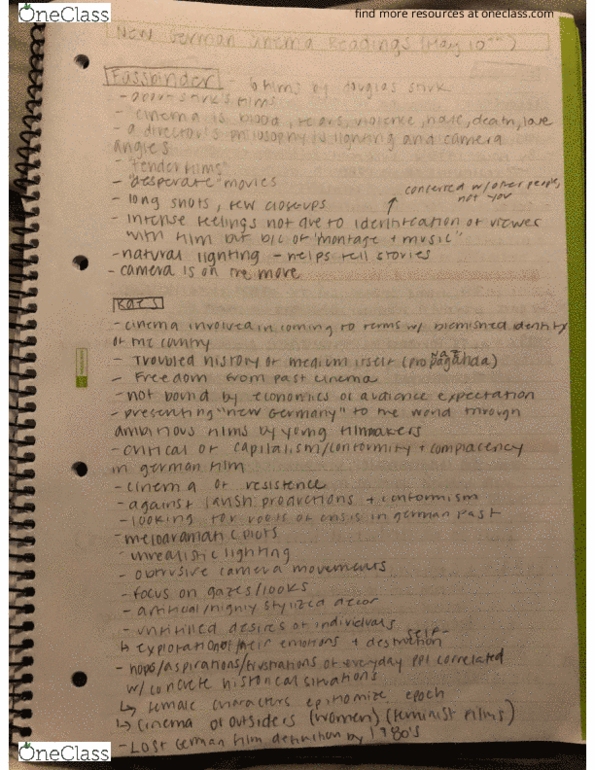 OneClass
find more resources at oneclass.com
New German Cinema Readings (May 10th)
Fassbinder - 6 films by Douglas Sirk
- about Sirk's films
- cinema is blood, tears, violence, hate, death, love
- a director's philosophy is lighting and camera
angles
- "tender films"
- "desperate" movies
concerned w/ other people,
not you
- long shots, few closeups
- intense feelings not due to identification of viewer
with film but b/c of "montage + music"
- natural lighting - helps tell stories
- camera is on the move
- cinema involved in coming to terms w/ blemished identity
of the country
- Troubled history of medium itself (propaganda)
- Freedom from past cinema
- not bound by economics or audience expectation
- presenting "new Germany" to the world through
ambitious films by young filmmakers
- critical of capitalism/conformity + complacency
in german film
- cinema of resistence
- against lavish productions + conformism
- looking for roots of crisis in german past
- melodramatic plots
- unrealistic lighting
- obtrusive camera movements
- focus on gazes/looks
- artificial/highly stylized decor
- unfulfilled desires of individuals
↳ exploration of their emotions + self-destruction
- hops/aspirations/frustrations of everyday ppl correlated
w/ concrete historical situations
↳ female characters epitomize epoch
↳ cinema of outsiders (women) (feminist films)
- Lost German film definition by 1980's
OneClass
OneClass